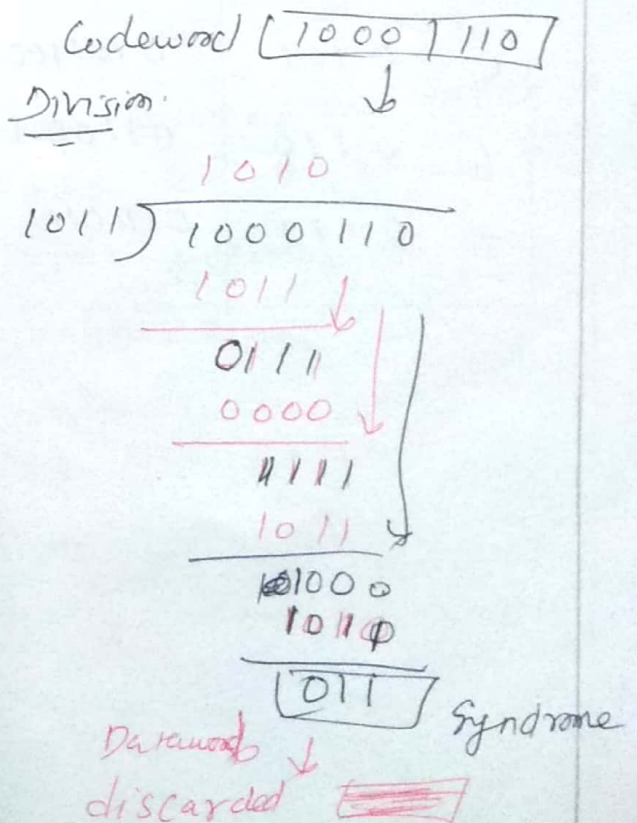 Codeword 1000 110
Division
1010
1011) 1000110
1011
0111
0000
1111
1011
1000
1011
011 Syndrome
Dataword
discarded